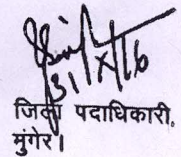 31/X/16
जिला पदाधिकारी,
मुंगेर।